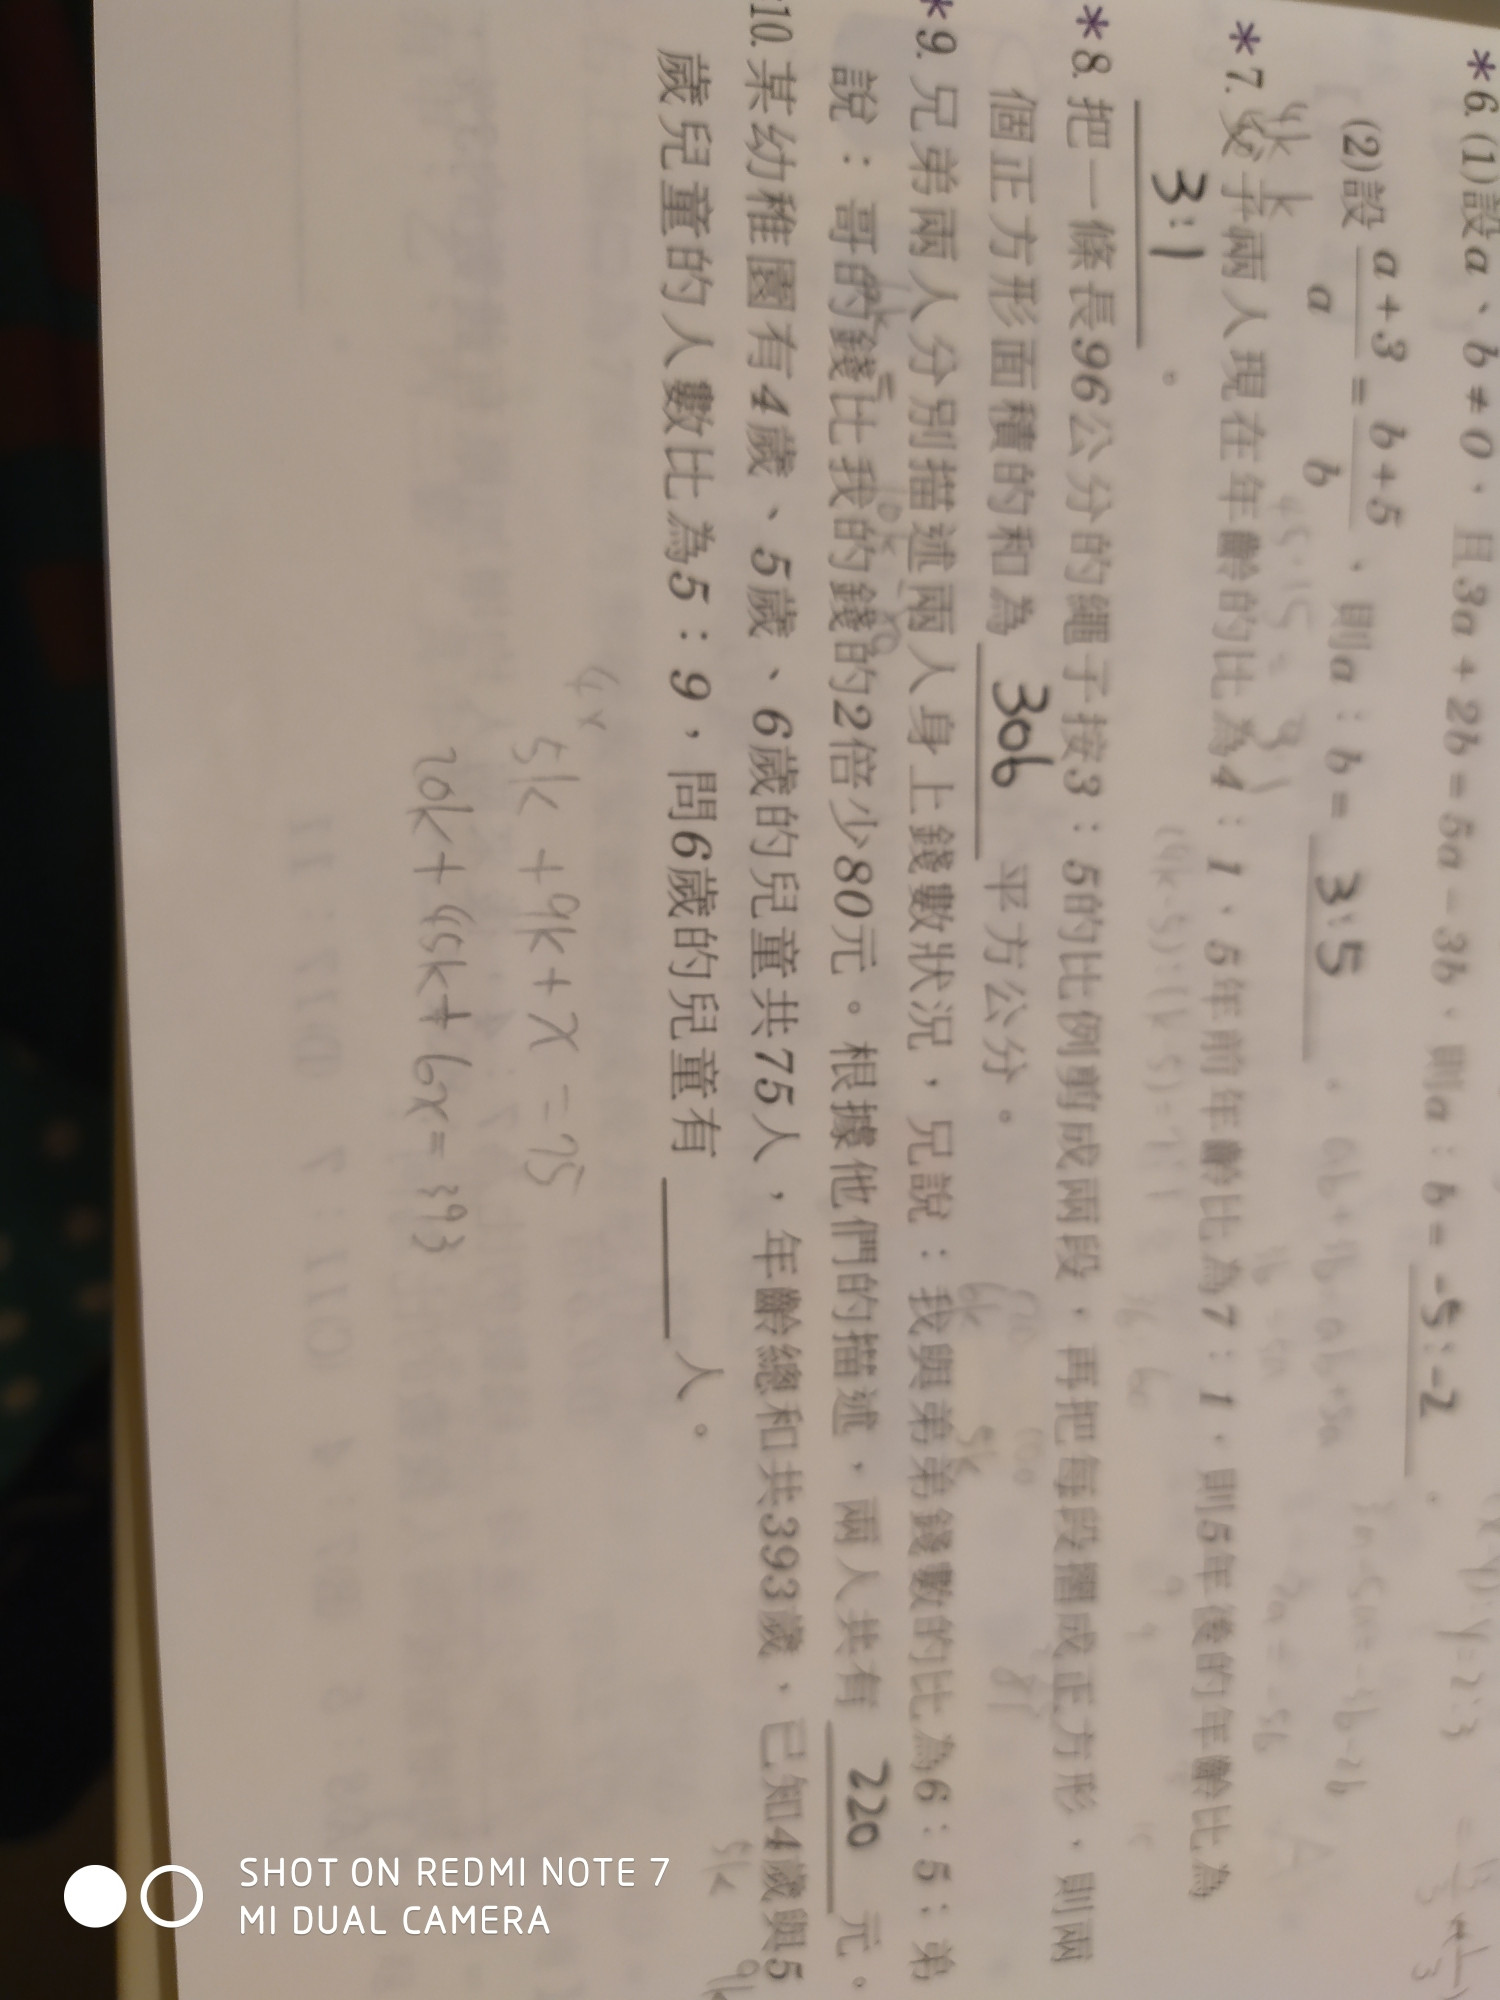 *6.(1)設a、b≠0，且3a＋2b＝5a－3b，則a：b＝ -5:-2 。
(2)設 a＋3/a ＝ b＋5/b ，則a：b＝ 3:5 。
4k k
*7.父子兩人現在年齡的比為4：1，5年前年齡比為7：1，則5年後的年齡比為
3:1 。
*8.把一條長96公分的繩子按3：5的比例剪成兩段，再把每段圍成正方形，則兩
個正方形面積的和為 306 平方公分。
6k 5k
*9.兄弟兩人分別描述兩人身上錢數狀況，兄說：我與弟弟錢數的比為6：5；弟
說：哥的錢比我的錢的2倍少80元。根據他們的描述，兩人共有 220 元。
10.某幼稚園有4歲、5歲、6歲的兒童共75人，年齡總和共393歲，已知4歲與5
歲兒童的人數比為5：9，問6歲的兒童有 人。
4x
5k + 9k + x = 75
20k + 45k + 6x = 393
SHOT ON REDMI NOTE 7
MI DUAL CAMERA